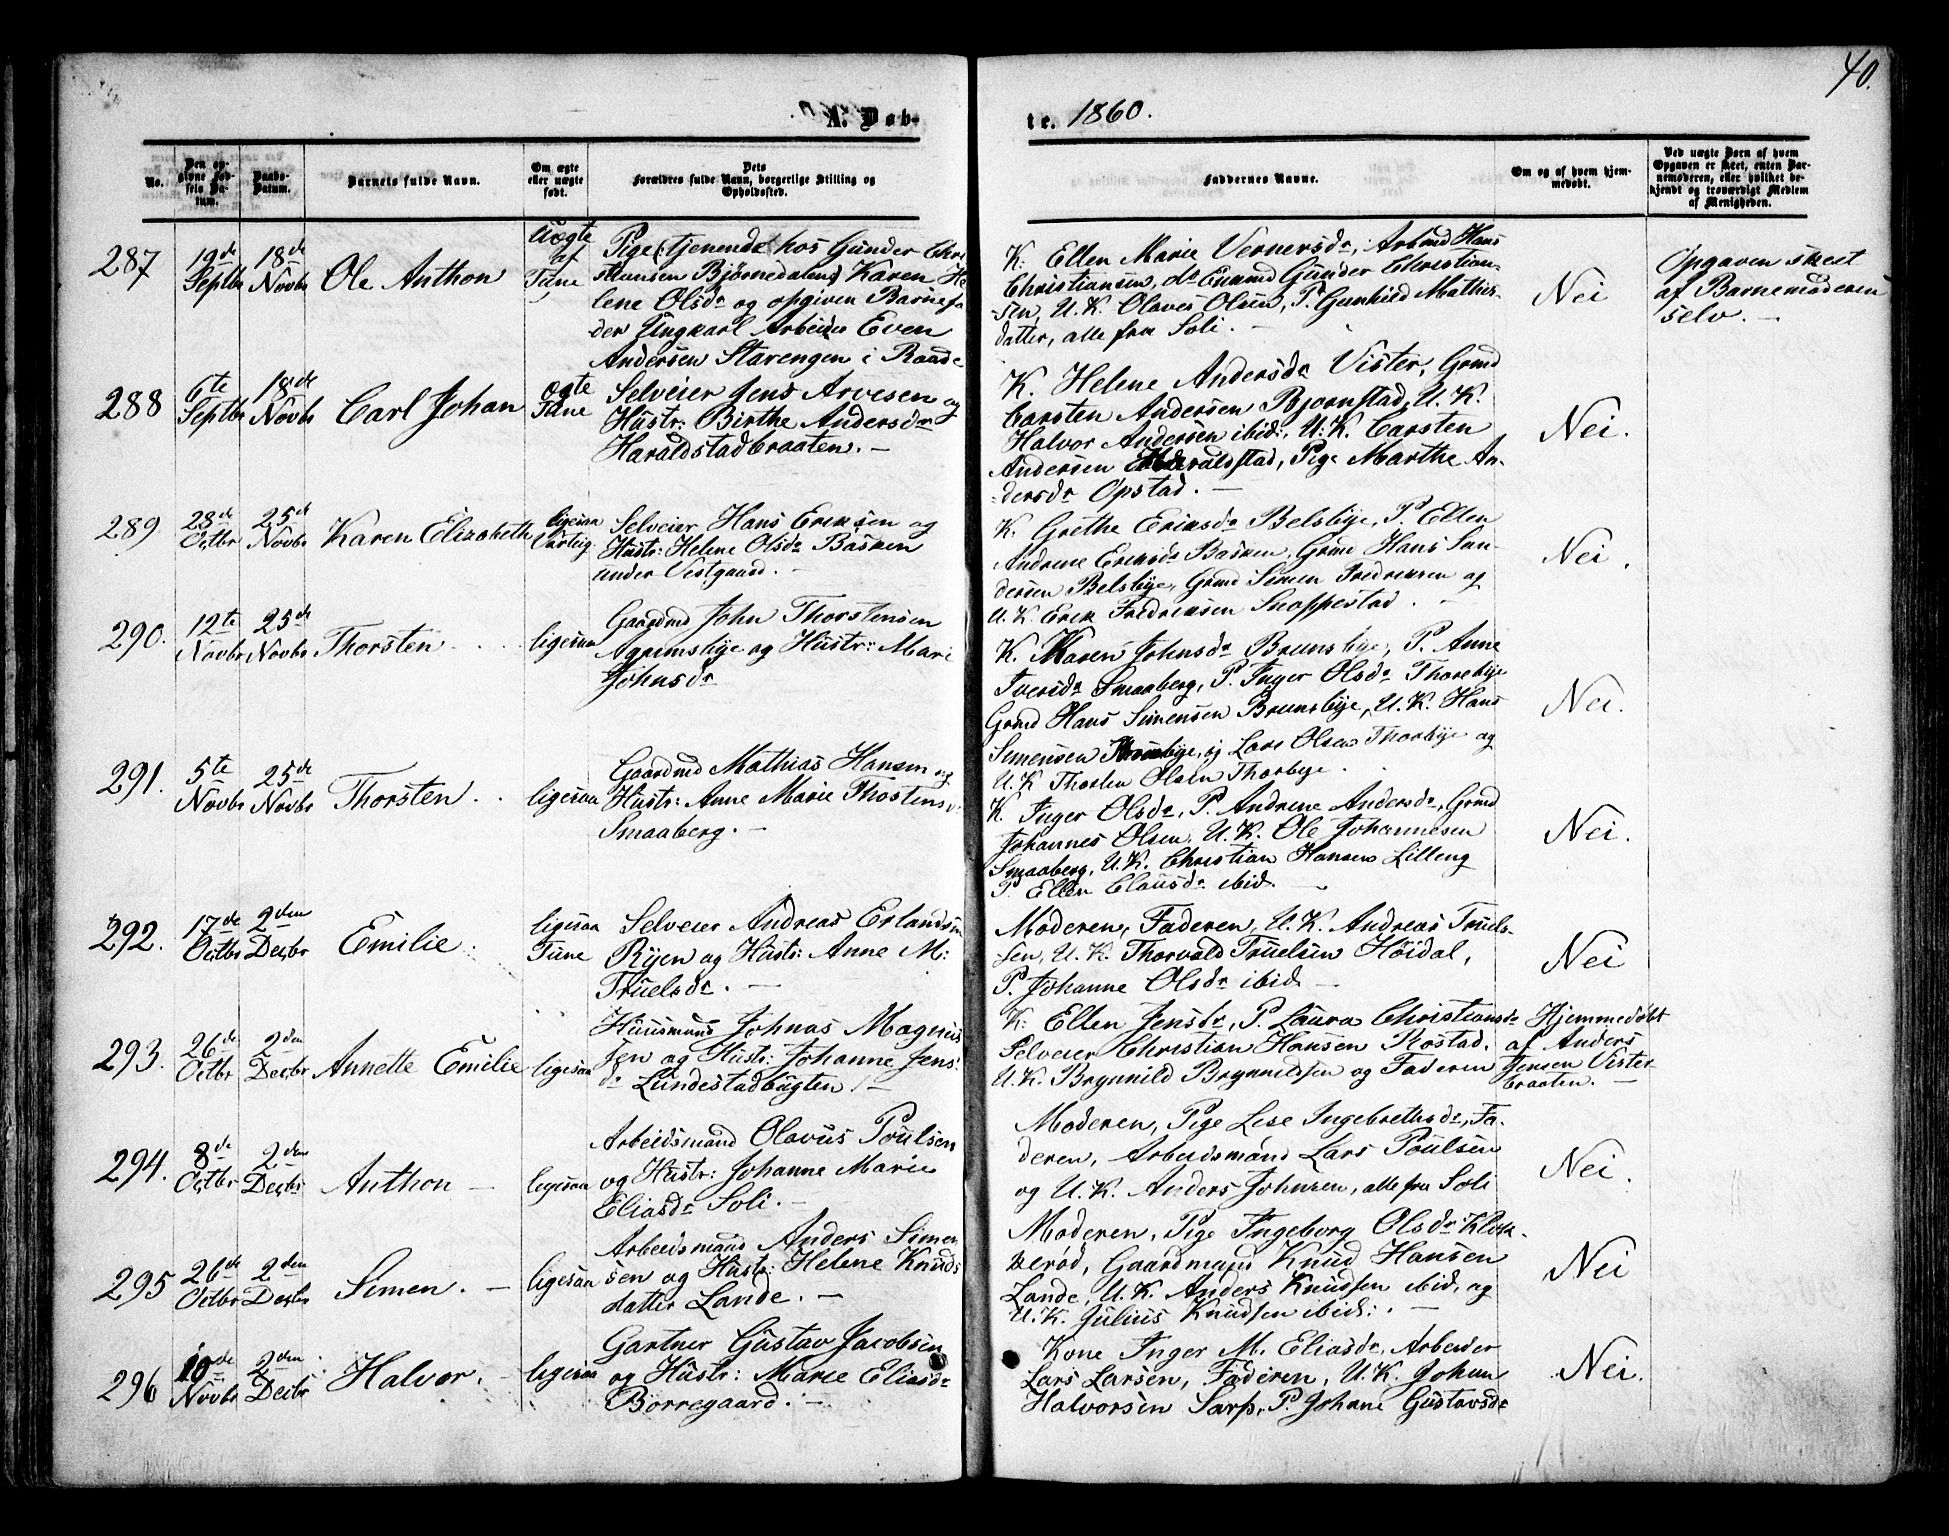 40.
A. Døb-
te. 1860.
No.
Den op-
givne Fød-
sels Da-
tum.
Daabs-
Datum.
Barnets fulde Navn.
Om ægte
eller uægte
født.
Dets
Forældres fulde Navn, borgerlige Stilling og
Opholdssted.
Faddernes Navne.
Om og af hvem hjem-
medøbt.
Ved uægte Børn af hvem
Opgaven er skeet, enten Bar-
nemoderen, eller hvilket be-
kjendt og troværdigt Medlem
af Menigheden.
287
19de
Septbr
18de
Novbr
Ole Anthon
Uægte
af
Tune
Pige (tjenende hos Gunder Chri
stiansen Bjørnedalen) Karen He
lene Olsdr og opgiven Barnefa
der Ungkarl Arbeider Even
Andersen Starengen i Raade
K. Ellen Marie Vernersdr, Arbmd Hans
Christiansen, do Enkemd Gunder Christian-
sen, U. K. Olaves Olsen, P. Gunhild Mathis-
datter, alle fra Soli. —
Nei
Opgaven skeet
af Barnemoderen
selv. —
288
6te
Septbr
18de
Novbr
Carl Johan
ægte
Tune
Selveier Jens Arvesen og
Hustr: Birthe Andersdr
Haraldstadbraaten. —
K. Helene Andersdr Vister, Grmd
Carsten Andersen Bjørnstad, U. K.
Halvor Andersen ibid:, U. K. Carsten
Andersen Haraldstad, Pige Marthe An-
dersdr Opstad. —
Nei.
289.
28de
Octbr
25de
Novbr
Karen Elizabeth
ligesaa
Varteig.
Selveier Hans Eriksen og
Hustr: Helene Olsdr Basken
under Vestgaard. —
K. Grethe Eriksdr Belsbye, P. Ellen
Andrine Eriksdr Basken, Grmd Hans San-
dersen Belsbye, Grmd Simen Fredriksen og
U. K. Erik Fredriksen Snoppestad. —
Nei.
290.
12te
Novbr
25de
Novbr
Thorsten
ligesaa
Gaardmd John Thorstensen
Agrimsbye og Hustr: Mari
Johnsdr
K. Karen Johnsdr Brunsbye, P. Anne
Iversdr Smaaberg, P. Inger Olsdr Thorebye
Grmd Hans Simensen Brunsbye, U. K. Hans
Simensen Brunsbye, og Lars Olsen Thorbye og
U. K. Thorsten Olsen Thorbye.
Nei.
291.
5te
Novbr
25de
Novbr
Thorsten
ligesaa
Gaardmd Mathias Hansen og
Hustr: Anne Marie Thostensd.
Smaaberg. —
K. Inger Olsdr, P. Andrine Andersdr, Grmd
Johannes Olsen, U. K. Ole Johannesen
Smaaberg, U. K. Christian Hansen Lilleng
P. Ellen Clausdr ibid. —
Nei.
292.
17de
Octbr
2den
Decbr
Emilie
ligesaa
Tune
Selveier Andreas Erlandsen
Ryen og Hustr: Anne M:
Truelsdr. —
Moderen, Faderen, U. K. Andreas Truel-
sen, U. K. Thorvald Truelsen Høidal,
P. Johanne Olsdr ibid —
Nei
293.
26de
Octbr
2den
Decbr
Annette Emilie
ligesaa
Huusmand Johnas Magnus
sen og Hustr: Johanne Jens-
dr Lundestadbugten. —
K. Ellen Jensdr, P. Laura Christiansdr
Selveier Christian Hansen Rostad.
U. K. Brynnild Brynnildsen og Faderen
Hjemmedøbt
af Anders
Jensen Vister-
braaten. —
294.
8de
Octbr
2den
Decbr
Anthon —
ligesaa
Arbeidsmand Olavus Poulsen
og Hustr: Johanne Marie
Eliasdr Soli. —
Moderen, Pige Lise Ingebrethsdr, Fa-
deren, Arbeidsmand Lars Poulsen
og U. K. Anders Johnsen, alle fra Soli
Nei.
295
26de
Octbr
2den
Decbr
Simen. —
ligesaa
Arbeidsmand Anders Simen
sen og Hustr: Helene Knuds
datter Lande. —
Moderen, Pige Ingeborg Olsdr Klok-
kerød, Gaardmand Knud Hansen
Lande, U. K. Anders Knudsen ibid, og
U. K. Julius Knudsen ibid:. —
Nei
296
19de
Novbr
2den
Decbr
Halvor. —
ligesaa
Gartner Gustav Jacobsen
og Hustr: Marie Eliasdr
Borregaard. —
Kone Inger M. Eliasdr, Arbeider
Lars Larsen, Faderen, U. K. Johan
Halvorsen Sarp, P. Johane Gustavsdr
Nei.